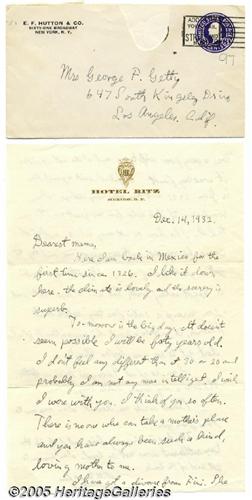 E. F. HUTTON & CO.
SIXTY-ONE BROADWAY
NEW YORK, N. Y.
Mrs George F. Getty
647 South Kingsley Drive
Los Angeles. Calif.
97
HOTEL RITZ
MEXICO, D. F.
Dec. 14, 1932.
Dearest mama,
Here I am back in Mexico for the
first time since 1926. I like it down
here. the climate is lovely and the scenery is
superb.
To-morrow is the big day. It doesn't
seem possible I will be forty years old.
I don't feel any different than at 30 or 20 and
probably I am not any more intelligent. I wish
I were with you. I think of you so often.
There is no one who can take a mother's place
and you have always been such a kind,
loving mother to me.
I have got a divorce from Fini. She
©2005 HeritageGalleries